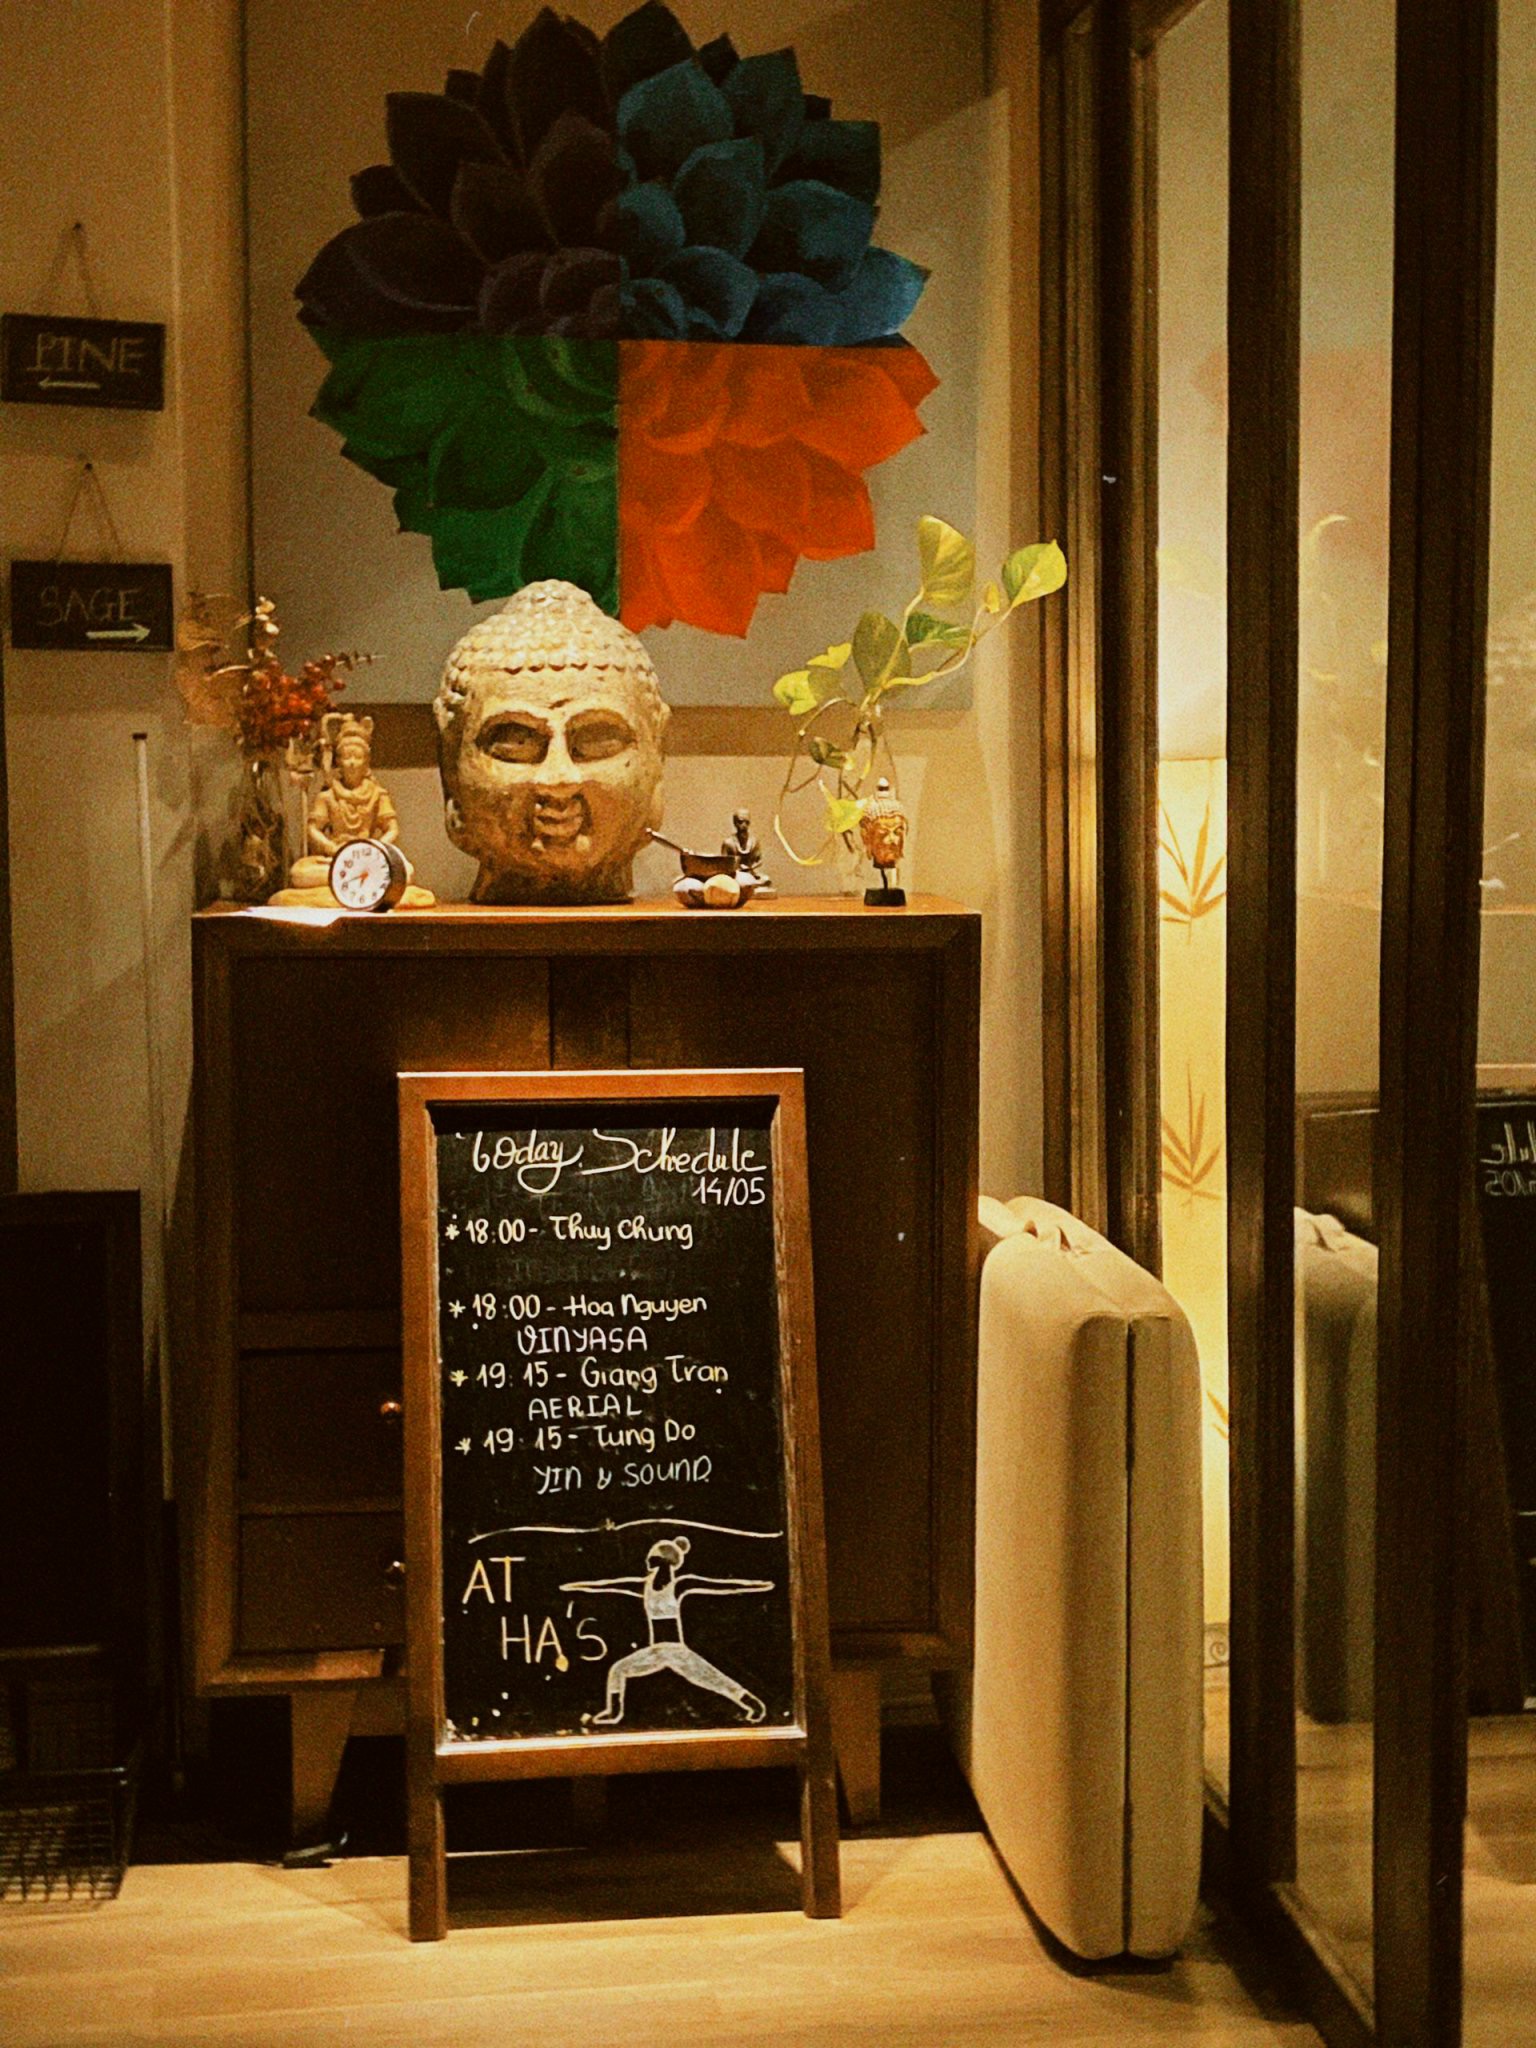 PINE
SAGE
Today Schedule
14/05
* 18:00 - Thuy Chung
* 18:00 - Hoa Nguyen
VINYASA
* 19:15 - Giang Tran
AERIAL
* 19:15 - Tung Do
YIN & SOUND
AT
HẠ'S